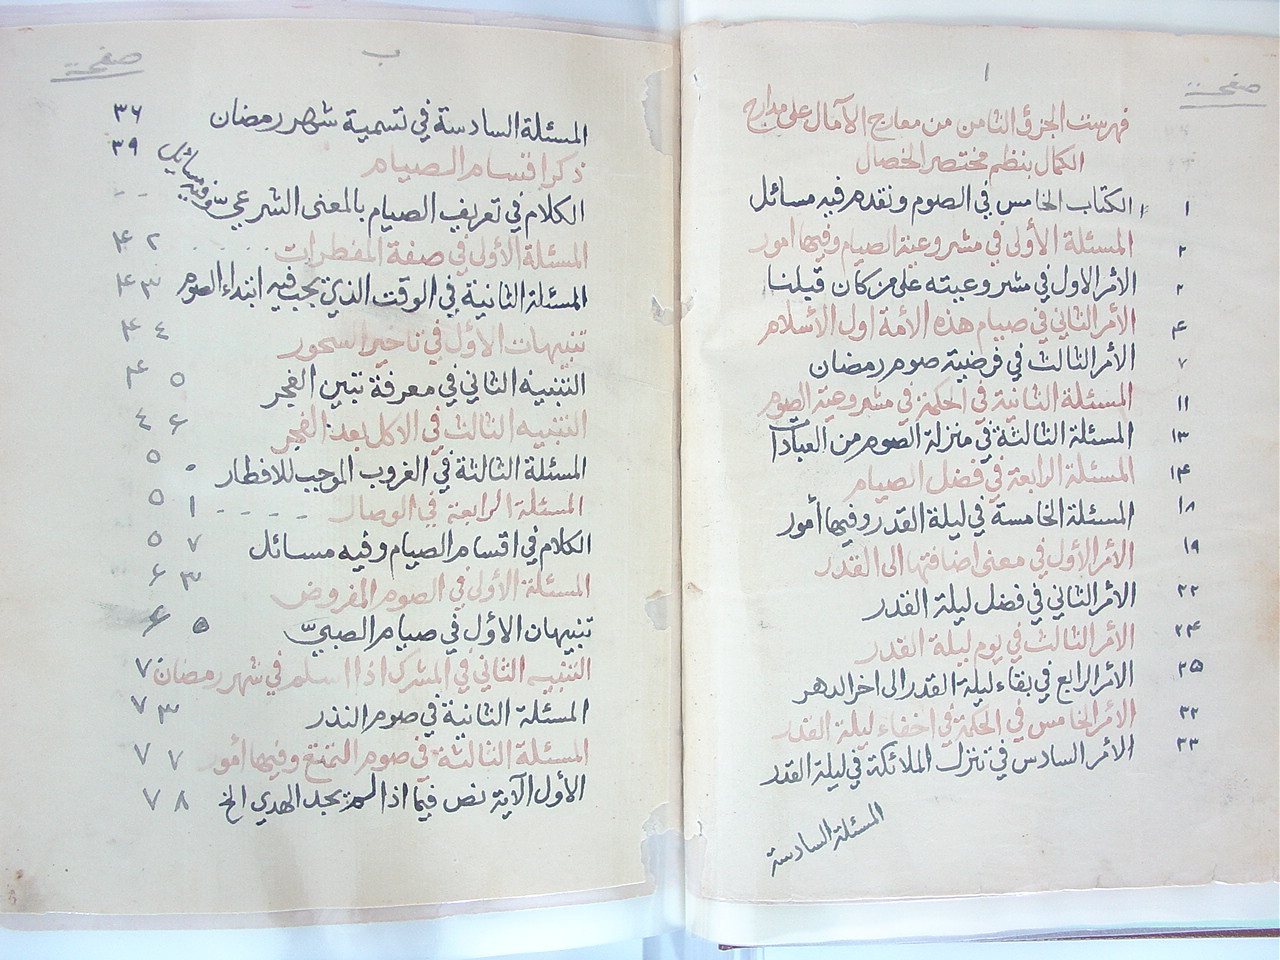 ١
صفحة
فهرست الجزؤ الثامن من معارج الآمال على مدارج
الكمال بنظم مختصر الخصال
الكتاب الخامس في الصوم ونقدم فيه مسائل ١
المسئلة الأولى في مشروعية الصيام وفيها امور ٢
الأمر الاول في مشروعيته على من كان قبلنا ٢
الأمر الثاني في صيام هذه الأمة اول الأسلام ۴
الأمر الثالث في فرضية صوم رمضان ٧
المسئلة الثانية في الحكمة في مشروعية الصوم ١١
المسئلة الثالثة في منزلة الصوم من العبادات ١٣
المسئلة الرابعة في فضل الصيام ١۴
المسئلة الخامسة في ليلة القدر وفيها أمور ١٨
الأمر الأول في معنى اضافتها الى القدر ١٩
الأمر الثاني في فضل ليلة القدر ٢٢
الأمر الثالث في يوم ليلة القدر ٢۴
الأمر الرابع في بقاء ليلة القدر الى اخر الدهر ٢۵
الأمر الخامس في الحكمة في اخفاء ليلة القدر ٣٢
الأمر السادس في تنزل الملائكة في ليلة القدر ٣٣
المسئلة السادسة
ب
صفحة
المسئلة السادسة في تسمية شهر رمضان ٣٦
ذكر اقسام الصيام ٣٩
الكلام في تعريف الصيام بالمعنى الشرعي وفيه مسائل - -
المسئلة الأولى في صفة المفطرات ۴٢
المسئلة الثانية في الوقت الذي يجب فيه ابتداء الصوم ۴٣
تنبيهات الأول في تاخير السحور ۴٤
التنبيه الثاني في معرفة تبين الفجر ۴٥
التنبيه الثالث في الاكل بعد الفجر ٤۶
المسئلة الثالثة في الغروب الموجب للافطار ٥٠
المسئلة الرابعة في الوصال - - - - - ٥١
الكلام في اقسام الصيام وفيه مسائل ٥٧
المسئلة الأولى في الصوم المفروض ۶٣
تنبيهان الأول في صيام الصبيّ ۶٥
التنبيه الثاني في المشرك اذا اسلم في شهر رمضان ٧
المسئلة الثانية في صوم النذر ٧٣
المسئلة الثالثة في صوم التمتع وفيها أمور ٧٧
الأول الآية نص فيما اذا لم يجد الهدي الخ ٧٨